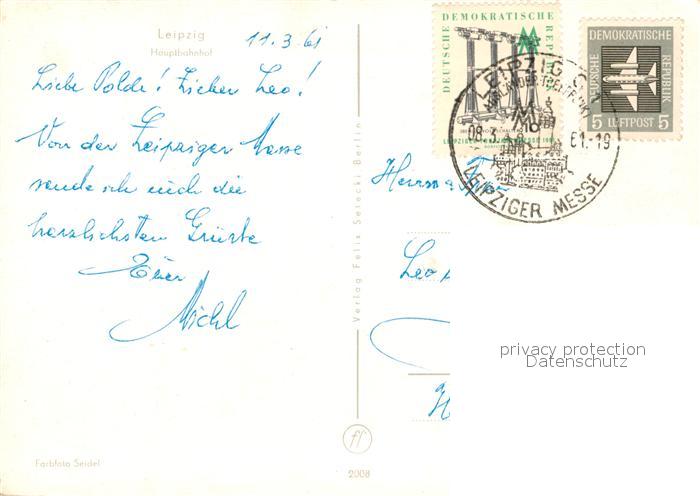 Leipzig
Hauptbahnhof
11.3.61
Liebe Polde! Lieber Leo!
Von der Leipziger Messe
sende ich euch die
herzlichsten Grüsse
Euer
Michl
Farbfoto Seidel
Verlag Felix Setecki Berlin
ff
2008
DEUTSCHE DEMOKRATISCHE REPUBLIK
DEMOKRATISCHE
DEUTSCHE REPUBLIK
5 LUFTPOST 5
LEIPZIG
08.3.61.-19
LEIPZIGER MESSE
Herrn
Leo
H
privacy protection
Datenschutz